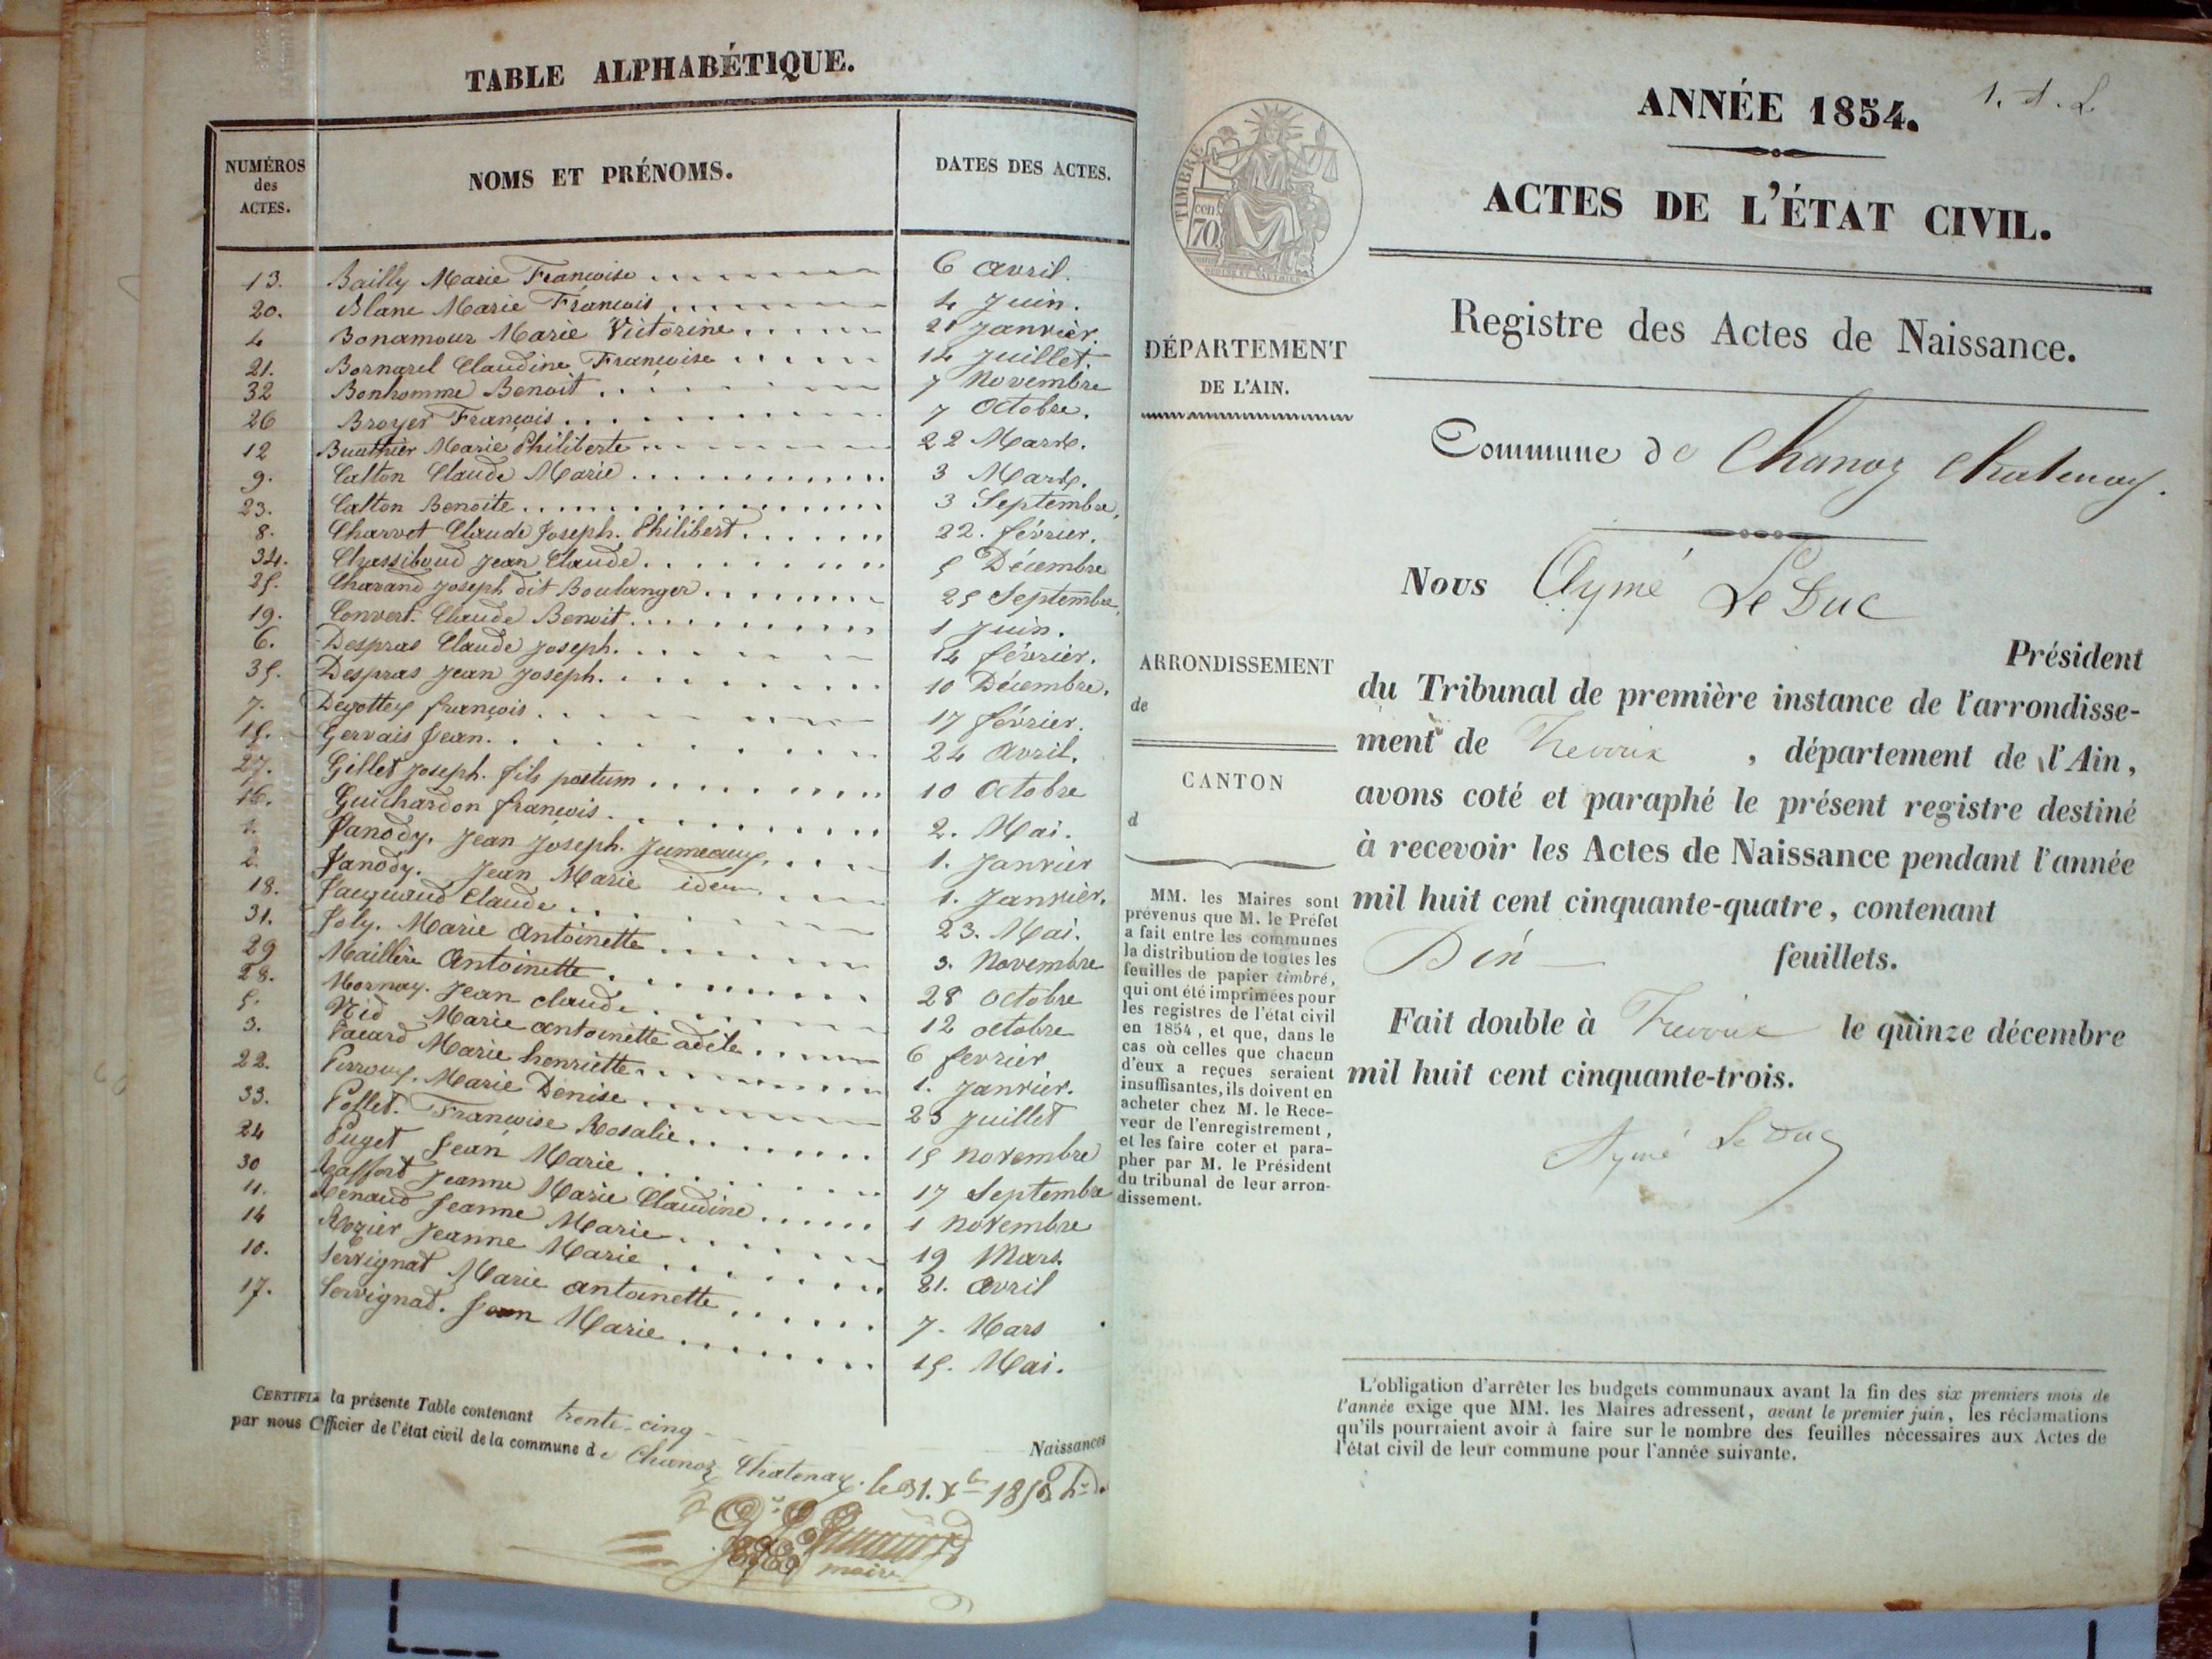 TABLE ALPHABÉTIQUE.
NUMÉROS des ACTES. NOMS ET PRÉNOMS. DATES DES ACTES.
13. Bailly Marie Francoise 6 avril.
20. Blanc Marie Francois 4 Juin.
4 Bonamour Marie Victorine 21 Janvier.
21. Bornarel Claudine Francoise 14 Juillet.
32 Bonhomme Benoit 7 Novembre
26 Broyer François 7 Octobre.
12 Buathier Marie Philiberte 22 Mars.
9. Catton Claude Marie 3 Mars.
23. Catton Benoite 3 Septembre.
8. Charvet Claude Joseph. Philibert 22. février.
34. Chassiboud Jean Claude 5 Décembre
25. Chavand Joseph dit Boulanger 25 Septembre.
19. Convert. Claude Benoit 1 Juin.
6. Despras Claude Joseph. 14 février.
35. Despras Jean Joseph. 10 Décembre.
7. Degottey françois 17 février.
15. Gervais Jean. 24 avril.
27. Gillet Joseph. fils postum 10 Octobre
16. Guichardon francois 2. Mai.
1. Janody. Jean Joseph. Jumeaux 1. Janvier
2. Janody. Jean Marie idem 1. Janvier.
18. Jacquand Claude 23. Mai.
31. Joly. Marie Antoinette 3. Novembre
29 Maillère Antoinette 28 octobre
28. Mornay. Jean claude 12 octobre
5. Nid Marie antoinette adèle 6 fevrier
3. Pacard Marie henriette 1. Janvier.
22. Perroux. Marie Denise 23 Juillet
33. Pollet. Francoise Rosalie 15 novembre
24 Puget Jean Marie 17 Septembre
30 Raffort Jeanne Marie Claudine 1 novembre
11. Renaud Jeanne Marie 19 Mars.
14 Rozier Jeanne Marie 21. avril
10. Servignat Marie antoinette 7. Mars
17. Servignat. Jean Marie 15. Mai.
CERTIFIÉ la présente Table contenant trente-cinq Naissances
par nous Officier de l'état civil de la commune de Chanoz Chatenay. le 31. Xbre
maire
1. A. L.
ANNÉE 1854.
ACTES DE L'ÉTAT CIVIL.
Registre des Actes de Naissance.
TIMBRE
cent
70
DÉPARTEMENT
DE L'AIN.
ARRONDISSEMENT
de
CANTON
d
MM. les Maires sont
prévenus que M. le Préfet
a fait entre les communes
la distribution de toutes les
feuilles de papier timbré,
qui ont été imprimées pour
les registres de l'état civil
en 1854, et que, dans le
cas où celles que chacun
d'eux a reçues seraient
insuffisantes, ils doivent en
acheter chez M. le Rece-
veur de l'enregistrement,
et les faire coter et para-
pher par M. le Président
du tribunal de leur arron-
dissement.
Commune de Chanoz Chatenay.
Nous Aymé Le Duc
Président
du Tribunal de première instance de l'arrondisse-
ment de Trevoux , département de l'Ain,
avons coté et paraphé le présent registre destiné
à recevoir les Actes de Naissance pendant l'année
mil huit cent cinquante-quatre, contenant
feuillets.
Fait double à Trevoux le quinze décembre
mil huit cent cinquante-trois.
Aymé Le Duc
L'obligation d'arrêter les budgets communaux avant la fin des six premiers mois de
l'année exige que MM. les Maires adressent, avant le premier juin, les réclamations
qu'ils pourraient avoir à faire sur le nombre des feuilles nécessaires aux Actes de
l'état civil de leur commune pour l'année suivante.